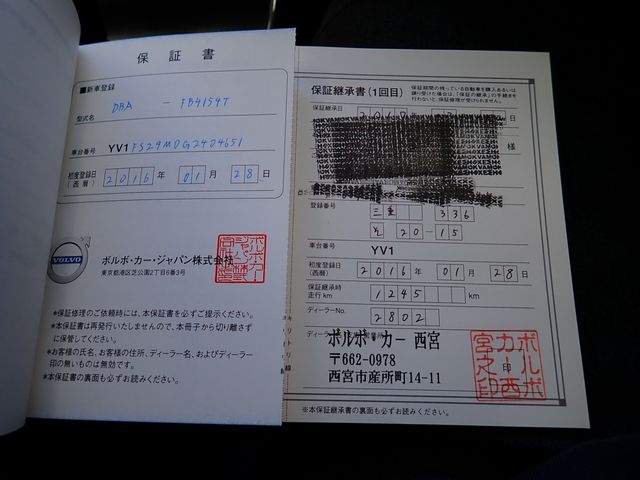 保証書
■新車登録
型式名 DBA - FB4154T
車台番号 YV1FS29MDG2424651
初度登録日 2016年 01月 28日
(西暦)
VOLVO
ボルボ・カー・ジャパン株式会社
東京都港区芝公園2丁目6番3号
*保証修理のご依頼時には、本保証書を必ずご提示ください。
*本保証書は再発行いたしませんので、本冊子から切り離さず
に保管してください。
*お客様の氏名、お客様の住所、ディーラー名、およびディーラー
印の無いものは無効です。
*本保証書の裏面も必ずお読みください。
キリトリ線
保証継承書(1回目)
保証期間の残っている自動車を購入あるいは
譲り受けた場合は、「保証の継承」の手続きを
行わないと、保証修理が受けられません。
保証継承日
日
様
登録番号 三重 336
そ 20-15
車台番号 YV1
初度登録日 2016年 01月 28日
(西暦)
保証継承時
走行km 1245 km
ディーラーNo. 2802
ボルボ・カー 西宮
〒662-0978
西宮市産所町14-11
ボルボ
カー西
宮之印
印
※本保証継承書の裏面も必ずお読みください。